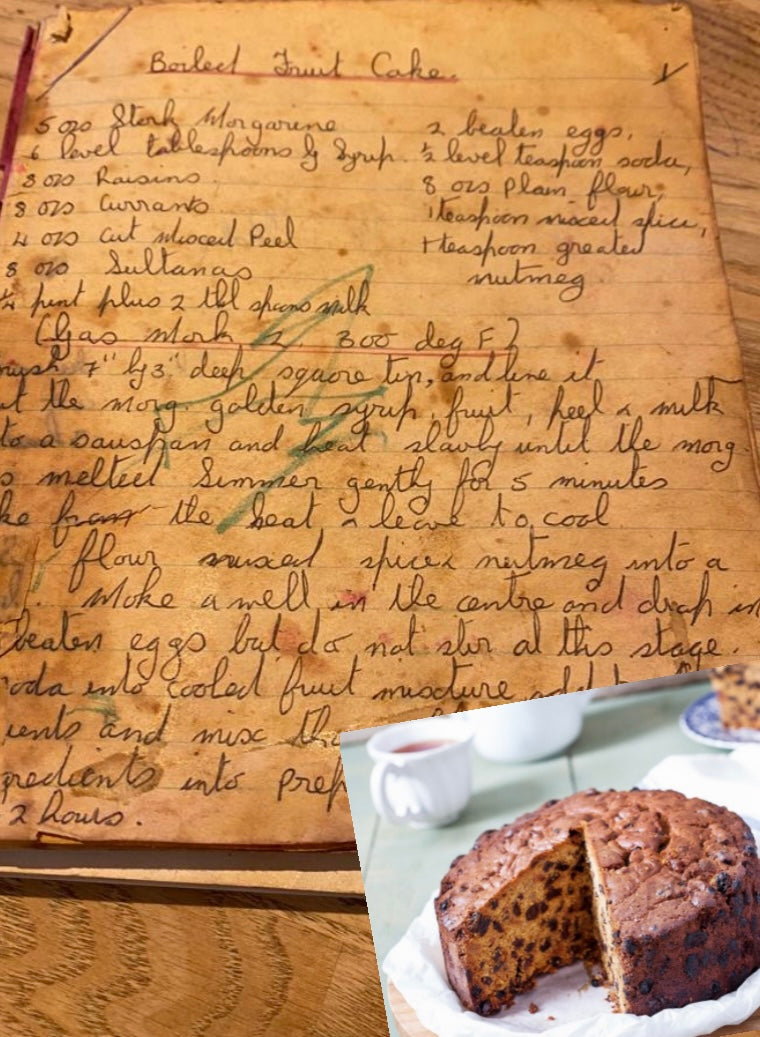 Boiled Fruit Cake.
5 ozs Stork Margarine
6 level tablespoons G Syrup.
8 ozs Raisins.
8 ozs Currants
4 ozs cut mixed Peel
8 ozs Sultanas
¼ pint plus 2 tbl spoons milk
2 beaten eggs,
½ level teaspoon soda,
8 ozs plain flour,
1 teaspoon mixed spice,
1 teaspoon greated
nutmeg.
(Gas Mark 2, 300 deg F)
rush 7" by 3" deep square tin, and line it
ut the marg. golden syrup, fruit, peel & milk
to a sauspan and heat slowly until the marg
s melted Simmer gently for 5 minutes
ke from the heat & leave to cool
flour mixed spice & nutmeg into a
l. Make a well in the centre and drop in
beaten eggs but do not stir at this stage.
oda into cooled fruit mixture add
ients and mix
gredients into prep
2 hours.